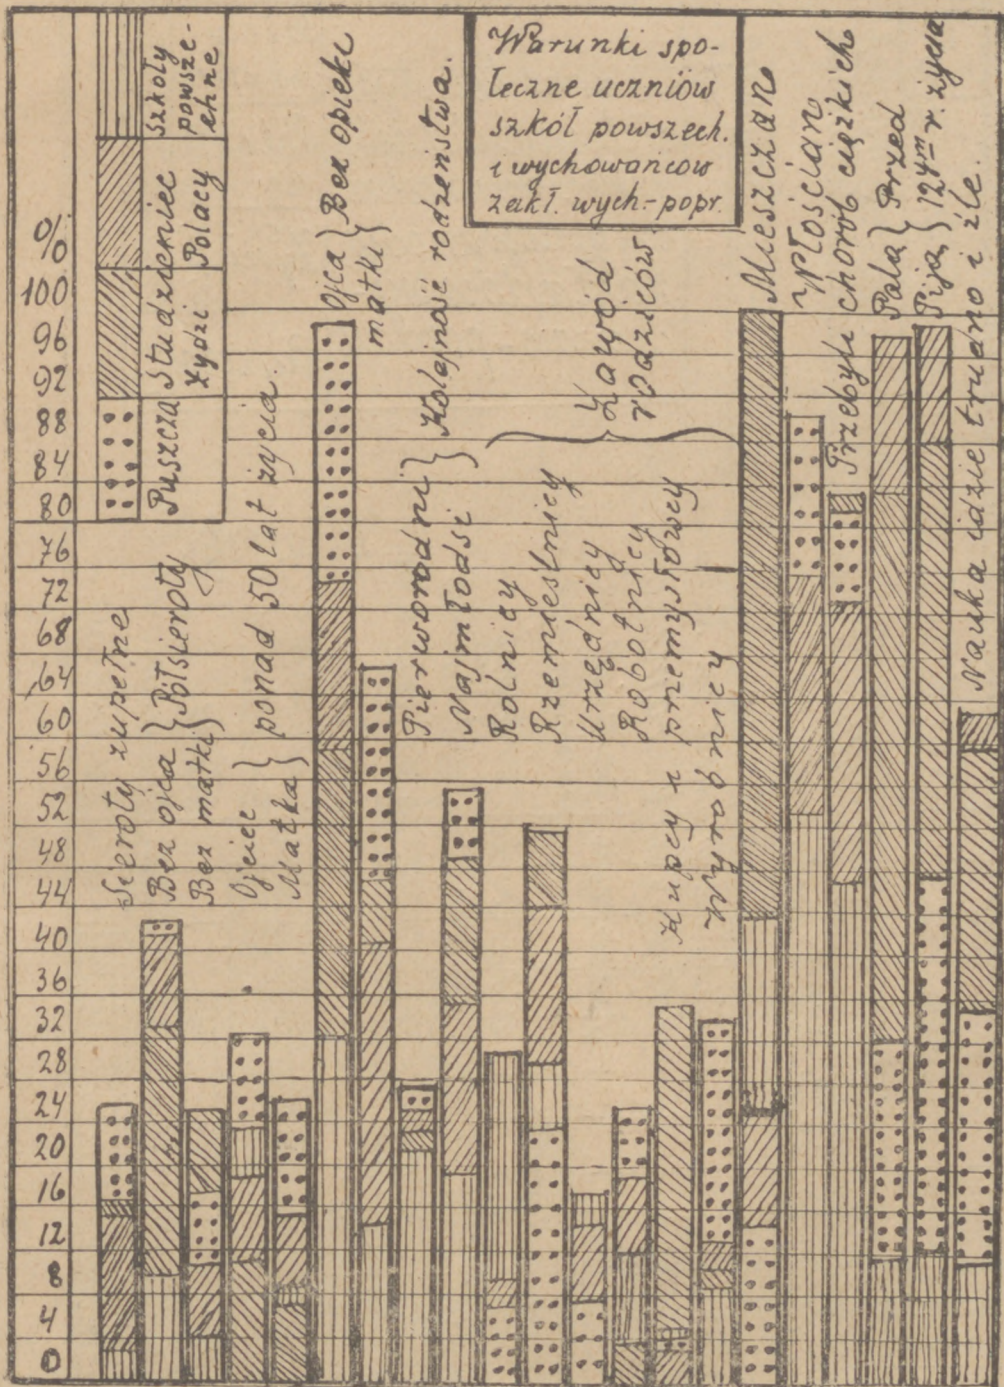 Warunki spo-
łeczne uczniów
szkół powszech.
i wychowańców
zakł. wych.-popr.
szkoły
powsze-
chne
Studzieniec
Polacy
Studzieniec
Żydzi
Puszcza
%
100
96
92
88
84
80
76
72
68
64
60
56
52
48
44
40
36
32
28
24
20
16
12
8
4
0
Sieroty zupełne
Bez ojca } Półsieroty
Bez matki
Ojciec } ponad 50 lat życia.
Matka
Ojca } Bez opieki
matki
Pierworodni } Kolejność rodzeństwa.
Najmłodsi
Rolnicy
Rzemieślnicy
Urzędnicy
Robotnicy
Kupcy i przemysłowcy
Wyrobnicy
Zawód
rodziców
Mieszczan
Włościan
Przebyli chorób ciężkich
Palą } Przed
Piją } 12tym r. życia
Nauka idzie trudno i źle.